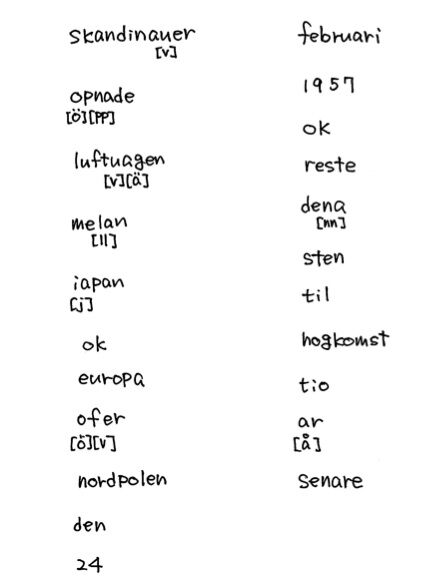 skandinauer
[v]
opnade
[ö][pp]
luftuagen
[v][ä]
melan
[ll]
iapan
[j]
ok
europa
ofer
[ö][v]
nordpolen
den
24
februari
1957
ok
reste
dena
[nn]
sten
til
hogkomst
tio
ar
[å]
senare